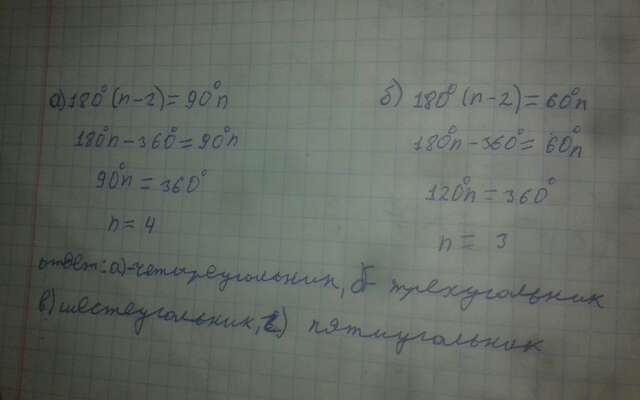 а) 180° (n-2) = 90°n
180°n - 360° = 90°n
90°n = 360°
n = 4
б) 180° (n-2) = 60°n
180°n - 360° = 60°n
120°n = 360°
n = 3
ответ: а)-четыреугольник, б- трехугольник
в) шестеугольник, г) пятиугольник